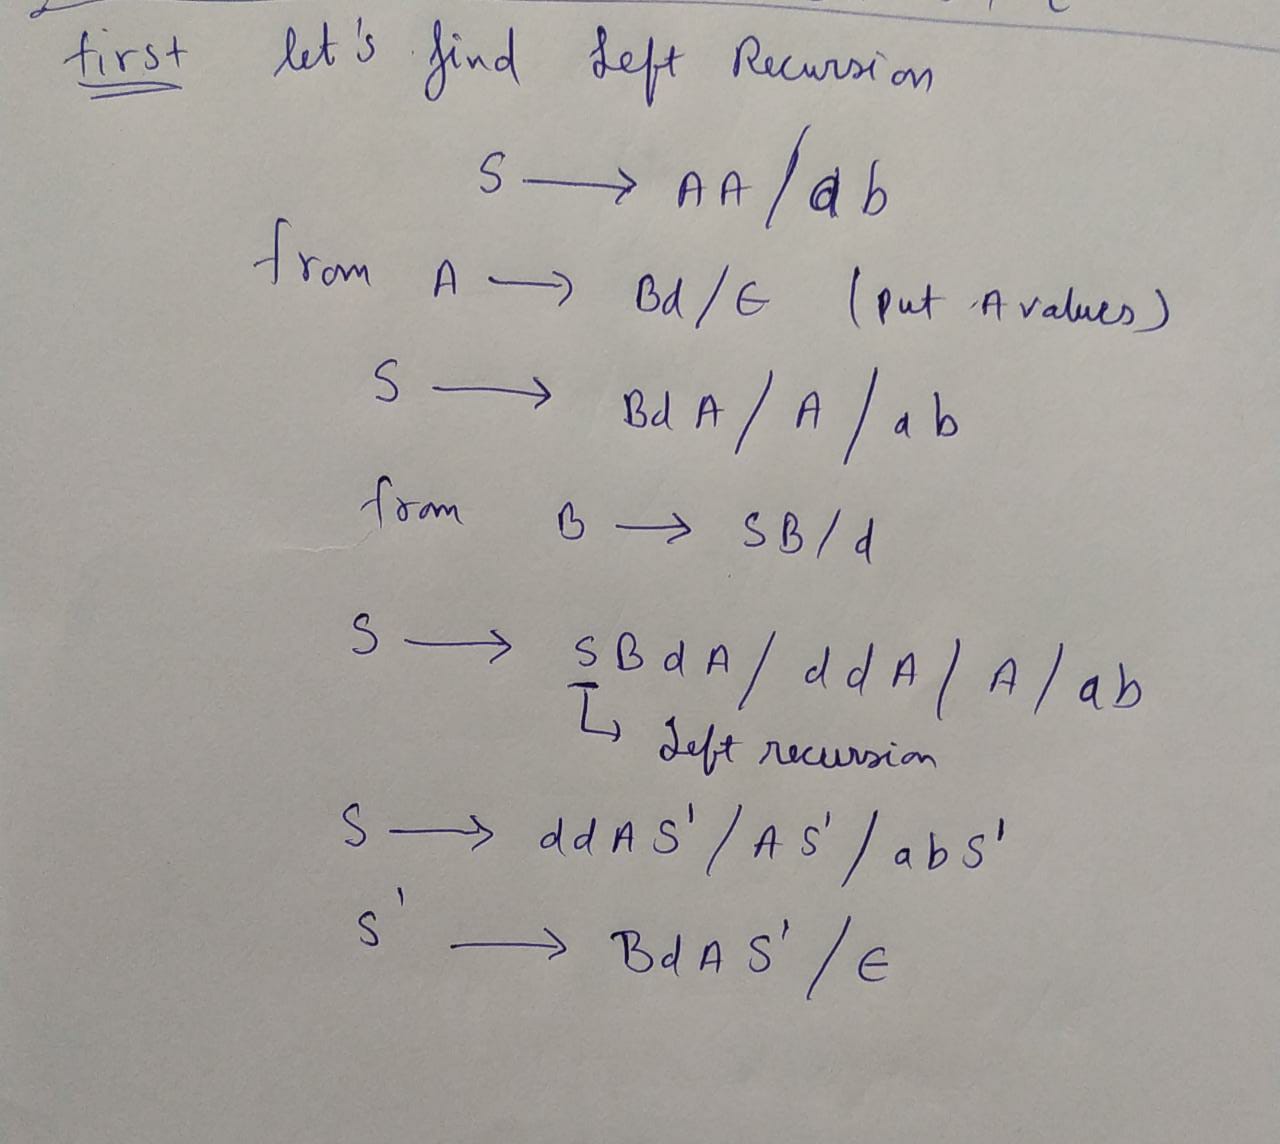 first let's find Left Recursion
S → AA / ab
from A → Bd / ϵ (put A values)
S → BdA / A / ab
from B → SB / d
S → SBdA / ddA / A / ab
↳ Left recursion
S → ddAS' / AS' / abS'
S' → BdAS' / ϵ